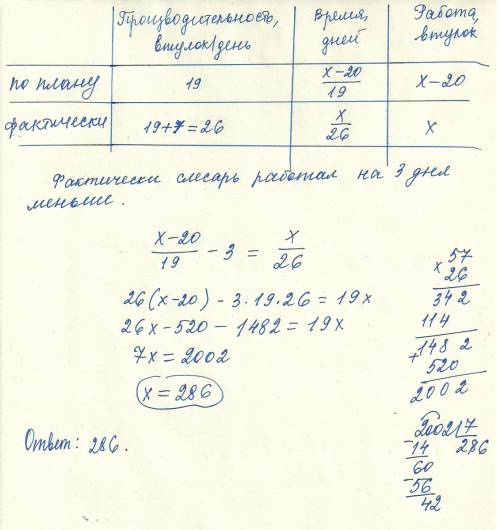 Производительность, втулок/день
Время, дней
Работа, втулок
по плану
19
x-20/19
x-20
фактически
19+7=26
x/26
x
Фактически слесарь работал на 3 дня
меньше.
x-20/19 - 3 = x/26
26(x-20) - 3·19·26 = 19x
26x-520-1482=19x
7x=2002
x=286
Ответ: 286.
x 57
26
342
114
+1482
520
2002
2002|7
-14 286
60
-56
42